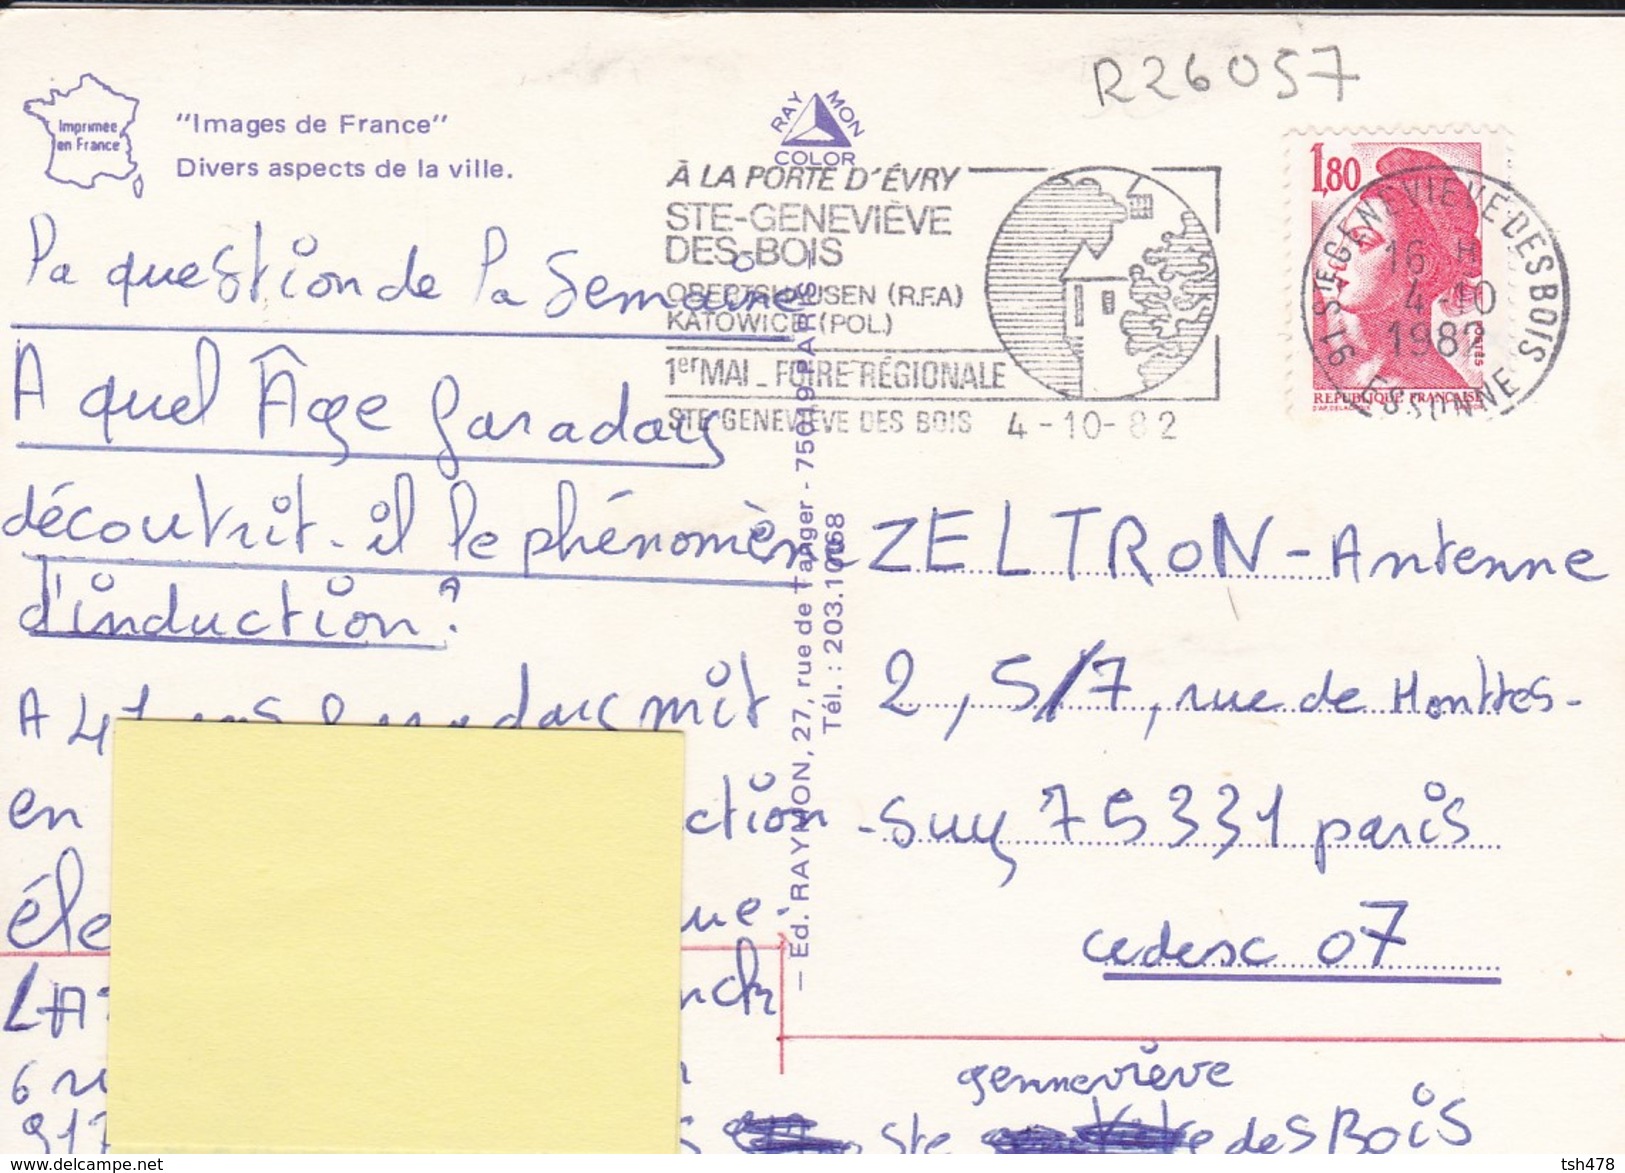 R26057
Imprimée
en France
"Images de France"
Divers aspects de la ville.
RAYMON
COLOR
À LA PORTE D'ÉVRY
STE-GENEVIÈVE
DES-BOIS
OBERTSHAUSEN (R.F.A)
KATOWICE (POL.)
1er MAI _ FOIRE RÉGIONALE
STE GENEVIÈVE DES BOIS 4-10-82
1,80
POSTES
REPUBLIQUE FRANÇAISE
91 STE GENEVIEVE DES BOIS
16 H
4-10
1982
ESSONNE
La question de la Semaine
A quel Âge faraday
découvrit-il le phénomène
d'induction?
A 41 ans faraday mit
en ction
éle que.
6
917
— Ed. RAYMON, 27, rue de Tanger - 75019 PARIS —
Tél. : 203.10.68
ZELTRON - Antenne
2, 5/7, rue de Monttes-
-suy 75331 paris
cedesc 07
gennevième
ste des Bois
tsh478
www.delcampe.net